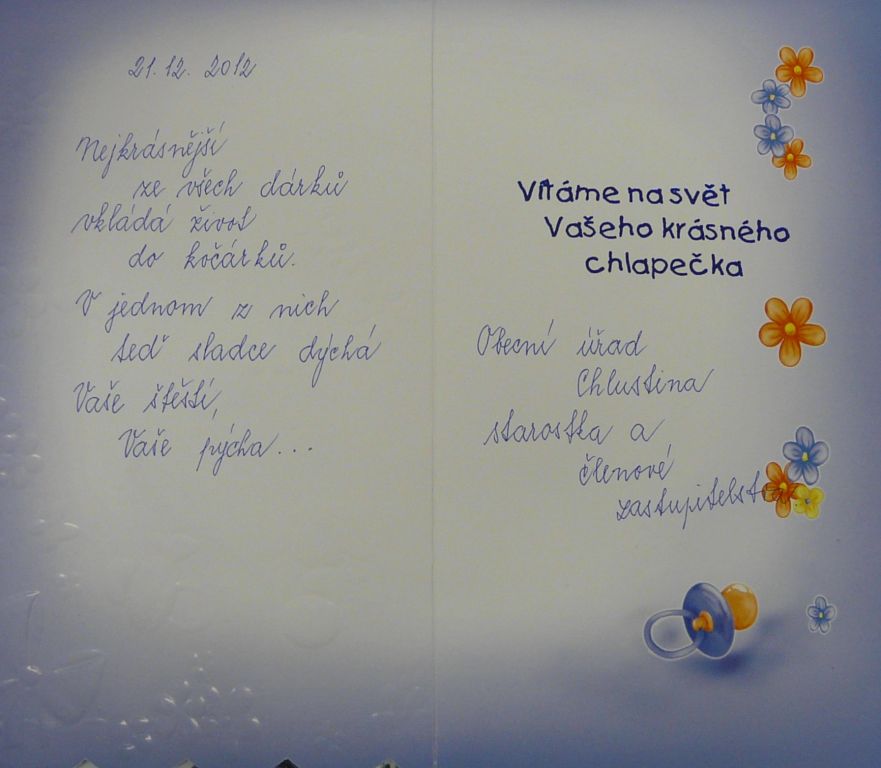 21.12. 2012
Nejkrásnější
ze všech dárků
vkládá život
do kočárků.
V jednom z nich
teď sladce dýchá
Vaše štěstí,
Vaše pýcha...
Vítáme na svět
Vašeho krásného
chlapečka
Obecní úřad
Chlustina
starostka a
členové
zastupitelstva